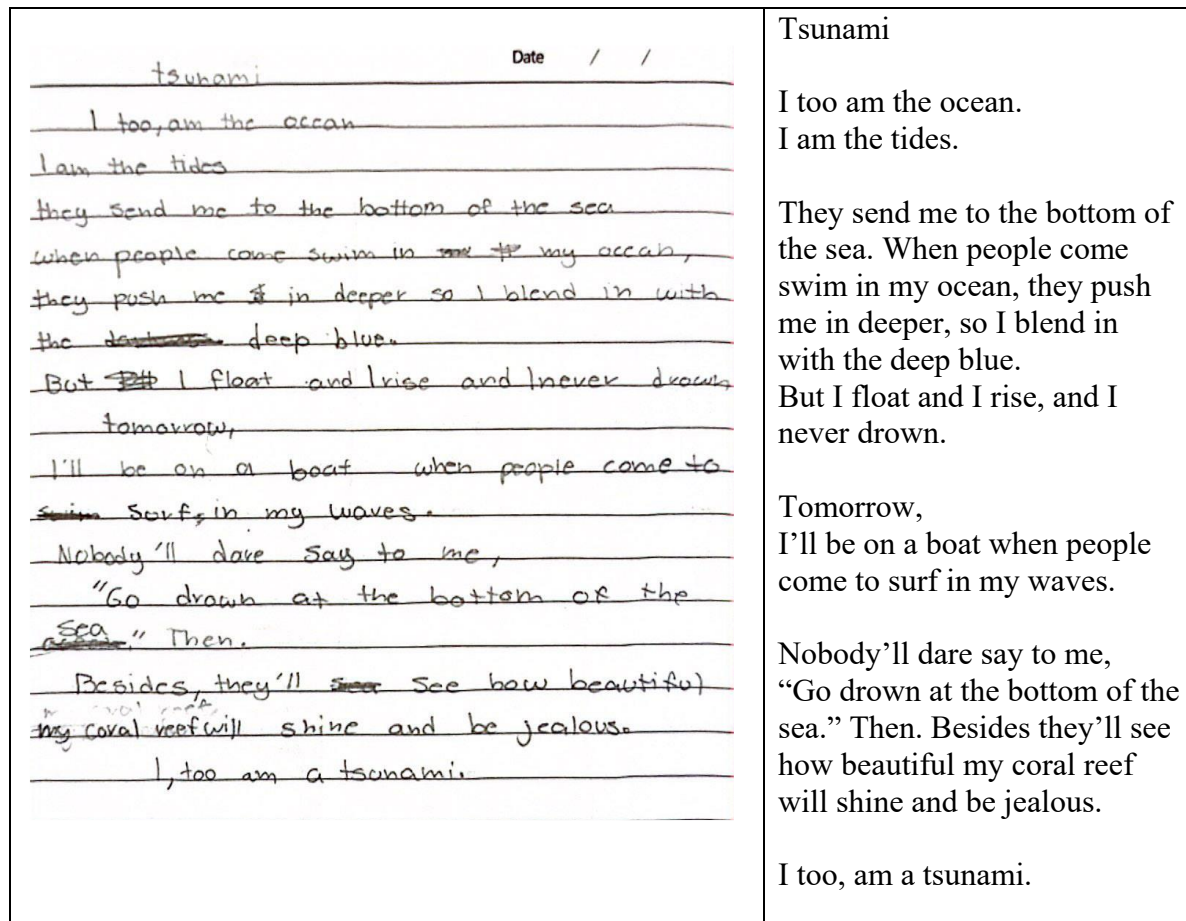 Date / /
tsunami
I too, am the ocean
I am the tides
they send me to the bottom of the sea
when people come swim in my ocean,
they push me in deeper so I blend in with
the deep blue.
But I float and I rise and I never drown
tomorrow,
I'll be on a boat when people come to
surf, in my waves.
Nobody'll dare say to me,
"Go drown at the bottom of the
sea." Then.
Besides, they'll see how beautiful
my coral reef will shine and be jealous.
I, too am a tsunami.
Tsunami
I too am the ocean.
I am the tides.
They send me to the bottom of
the sea. When people come
swim in my ocean, they push
me in deeper, so I blend in
with the deep blue.
But I float and I rise, and I
never drown.
Tomorrow,
I’ll be on a boat when people
come to surf in my waves.
Nobody’ll dare say to me,
“Go drown at the bottom of the
sea.” Then. Besides they’ll see
how beautiful my coral reef
will shine and be jealous.
I too, am a tsunami.